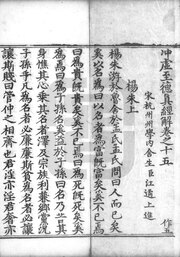 沖虛至德真經解卷之十五 作五
宋杭州州學內舍生臣江遹上進
楊朱上
楊朱游於魯舍於孟氏孟氏問曰人而已矣
奚以名為曰以名者為富既富矣奚不已焉
曰為貴既貴矣奚不已焉曰為死既死矣奚
為焉曰為子孫名奚益於子孫曰名乃苦其
身燋其心乘其名者澤及宗族利兼鄉黨況
子孫乎凡為名者必廉廉斯貧為名者必讓
讓斯賤曰管仲之相齊也君淫亦淫君奢亦